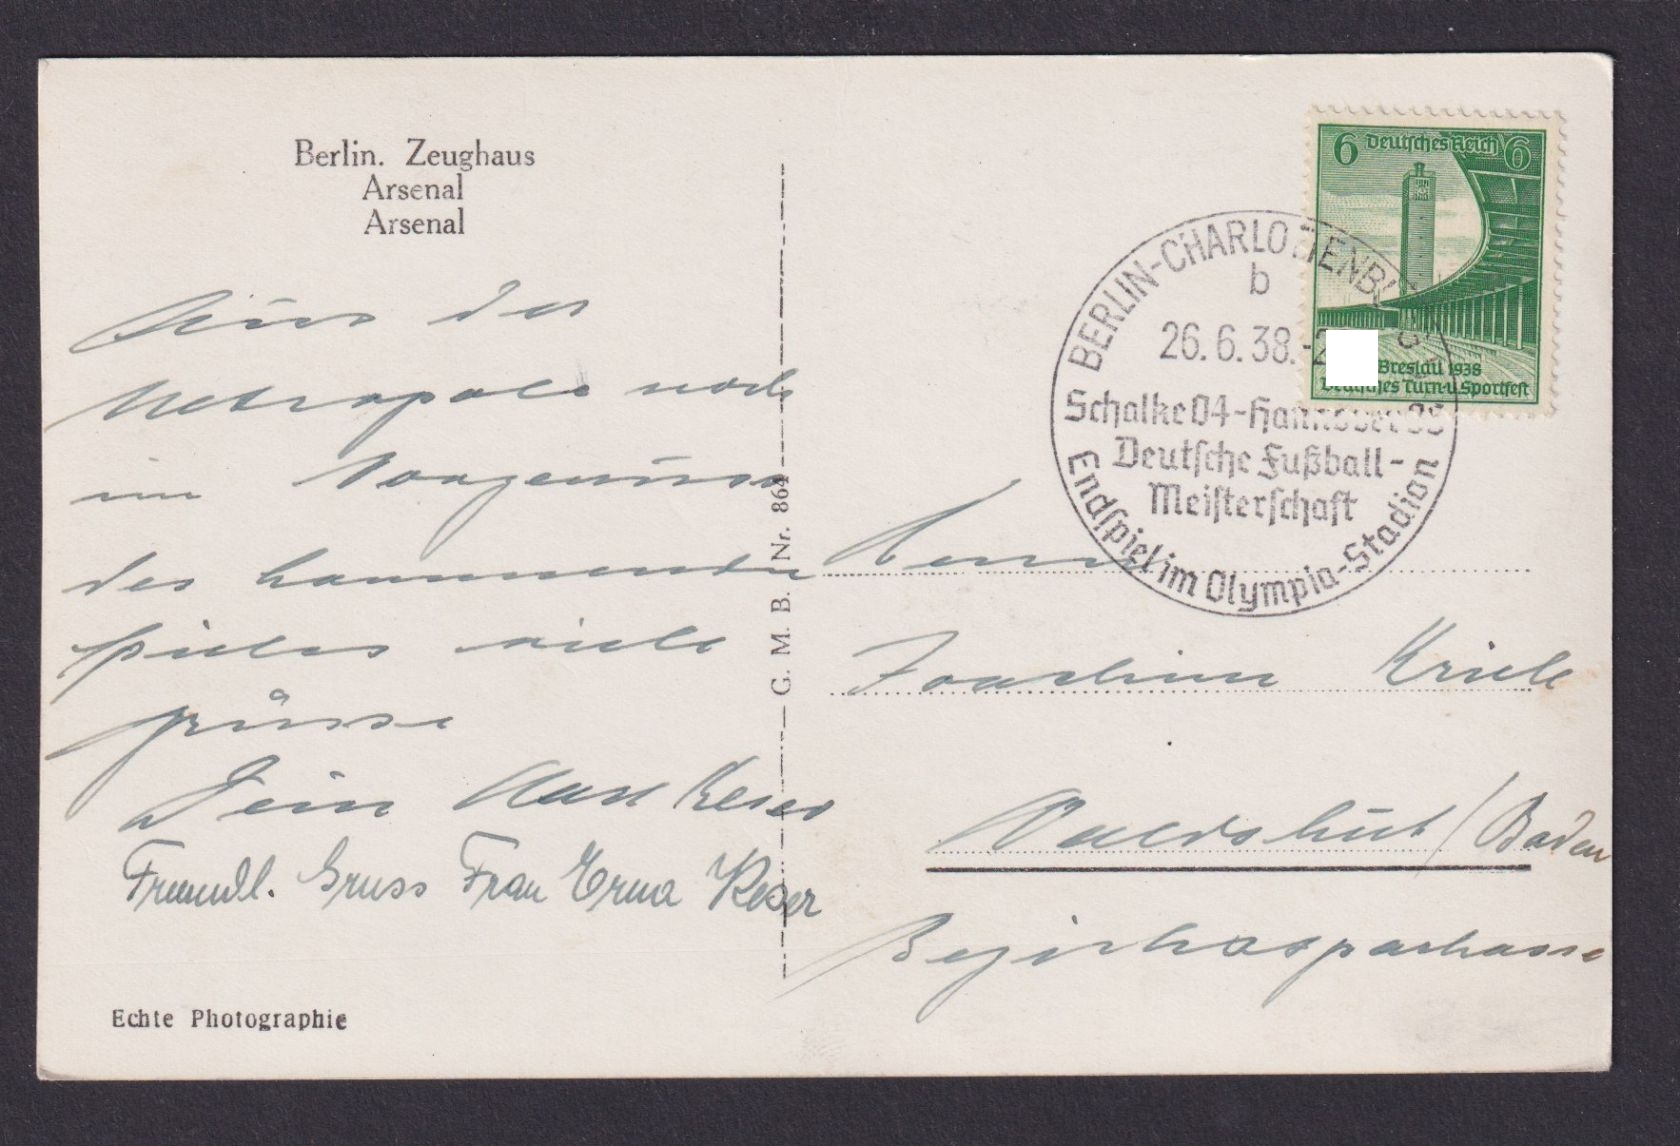 Berlin. Zeughaus
Arsenal
Arsenal
Aus der
Metropole noch
im Vorgenuss
des kommenden
Spieles viele
Grüsse
Dein Karl Keser
Freundl. Gruss Frau Erna Keser
Echte Photographie
G. M. B. Nr. 864
6 Deutsches Reich 6
Breslau 1938
Deutsches Turn-u. Sportfest
BERLIN-CHARLOTTENBURG
b
26.6.38.-2
Schalke 04-Hannover 96
Deutsche Fußball-
Meisterschaft
Endspiel im Olympia-Stadion
Herrn
Joachim
Waldshut / Baden
Bezirkssparkasse